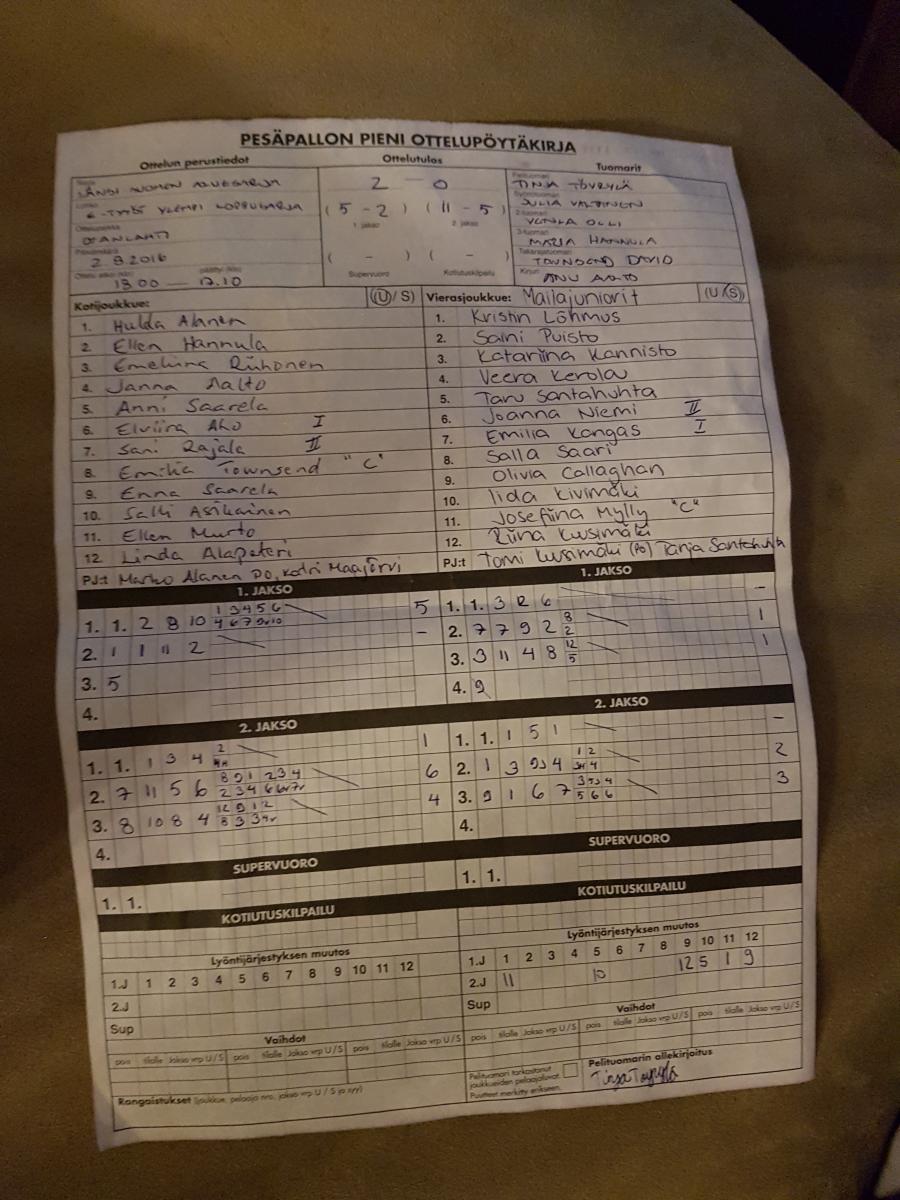 PESÄPALLON PIENI OTTELUPÖYTÄKIRJA
Ottelun perustiedot Ottelutulos Tuomarit
LÄNSI SUOMEN ALUESARJA
E-TYTÖT YLEMPI LOPPUSARJA
2.9.2016
18.00 — 19.10
2 – 0
(5 – 2) (11 – 5)
1. jakso 2. jakso
( – ) ( – )
Supervuoro Kotiutuskilpailu
TINJA TÖYRYLÄ
JULIA VALTONEN
VENLA OLLI
MARIA HANNULA
TOWNSEND DAVID
ANU AALTO
Kotijoukkue: (U / S)
1. Hulda Alanen
2. Ellen Hannula
3. Emeliina Riihonen
4. Janna Aalto
5. Anni Saarela
6. Elviira Aho I
7. Sani Rajala II
8. Emilia Townsend "C"
9. Enna Saarela
10. Salli Asikainen
11. Ellen Murto
12. Linda Alapeteri
PJ:t Marko Alanen PO, Katri Maajärvi
Vierasjoukkue: Mailajuniorit (U / S)
1. Kristin Lõhmus
2. Saini Puisto
3. Katariina Kannisto
4. Veera Kerola
5. Taru Santahuhta
6. Joanna Niemi II
7. Emilia Kangas I
8. Salla Saari
9. Olivia Callaghan
10. Iida Kivimäki
11. Josefiina Mylly "C"
12. Riina Kuusimäki
PJ:t Tomi Kuusimäki (PO) Tanja Santahuhta
1. JAKSO
1. 1. 2 8 10 1 3 4 5 6 5
2. 1 1 11 2 –
3. 5
4.
1. JAKSO
1. 1. 3 R 6 –
2. 7 7 9 2 8 2 1
3. 3 11 4 8 12 5 1
4. 9
2. JAKSO
1. 1. 1 3 4 2 1
2. 7 11 5 6 8 9 1 2 3 4 6
3. 8 10 8 4 12 9 1 2 4
4.
2. JAKSO
1. 1. 1 5 1 –
2. 1 3 9 4 1 2 2
3. 9 1 6 7 5 6 6 3
4.
SUPERVUORO
1. 1.
SUPERVUORO
1. 1.
KOTIUTUSKILPAILU
KOTIUTUSKILPAILU
Lyöntijärjestyksen muutos
1.J 1 2 3 4 5 6 7 8 9 10 11 12
2.J
Sup
Lyöntijärjestyksen muutos
1.J 1 2 3 4 5 6 7 8 9 10 11 12
2.J 11 10 12 5 1 9
Sup
Vaihdot
pois tilalle Jakso vrp U / S pois tilalle Jakso vrp U / S pois tilalle Jakso vrp U / S
Vaihdot
pois tilalle Jakso vrp U / S pois tilalle Jakso vrp U / S pois tilalle Jakso vrp U / S
Rangaistukset (joukkue, pelaaja nro, jakso vrp U / S ja syy)
Pelituomari tarkastanut
joukkueiden pelaajaluvat.
Puutteet merkitty erikseen.
Pelituomarin allekirjoitus
Tinja Töyrylä